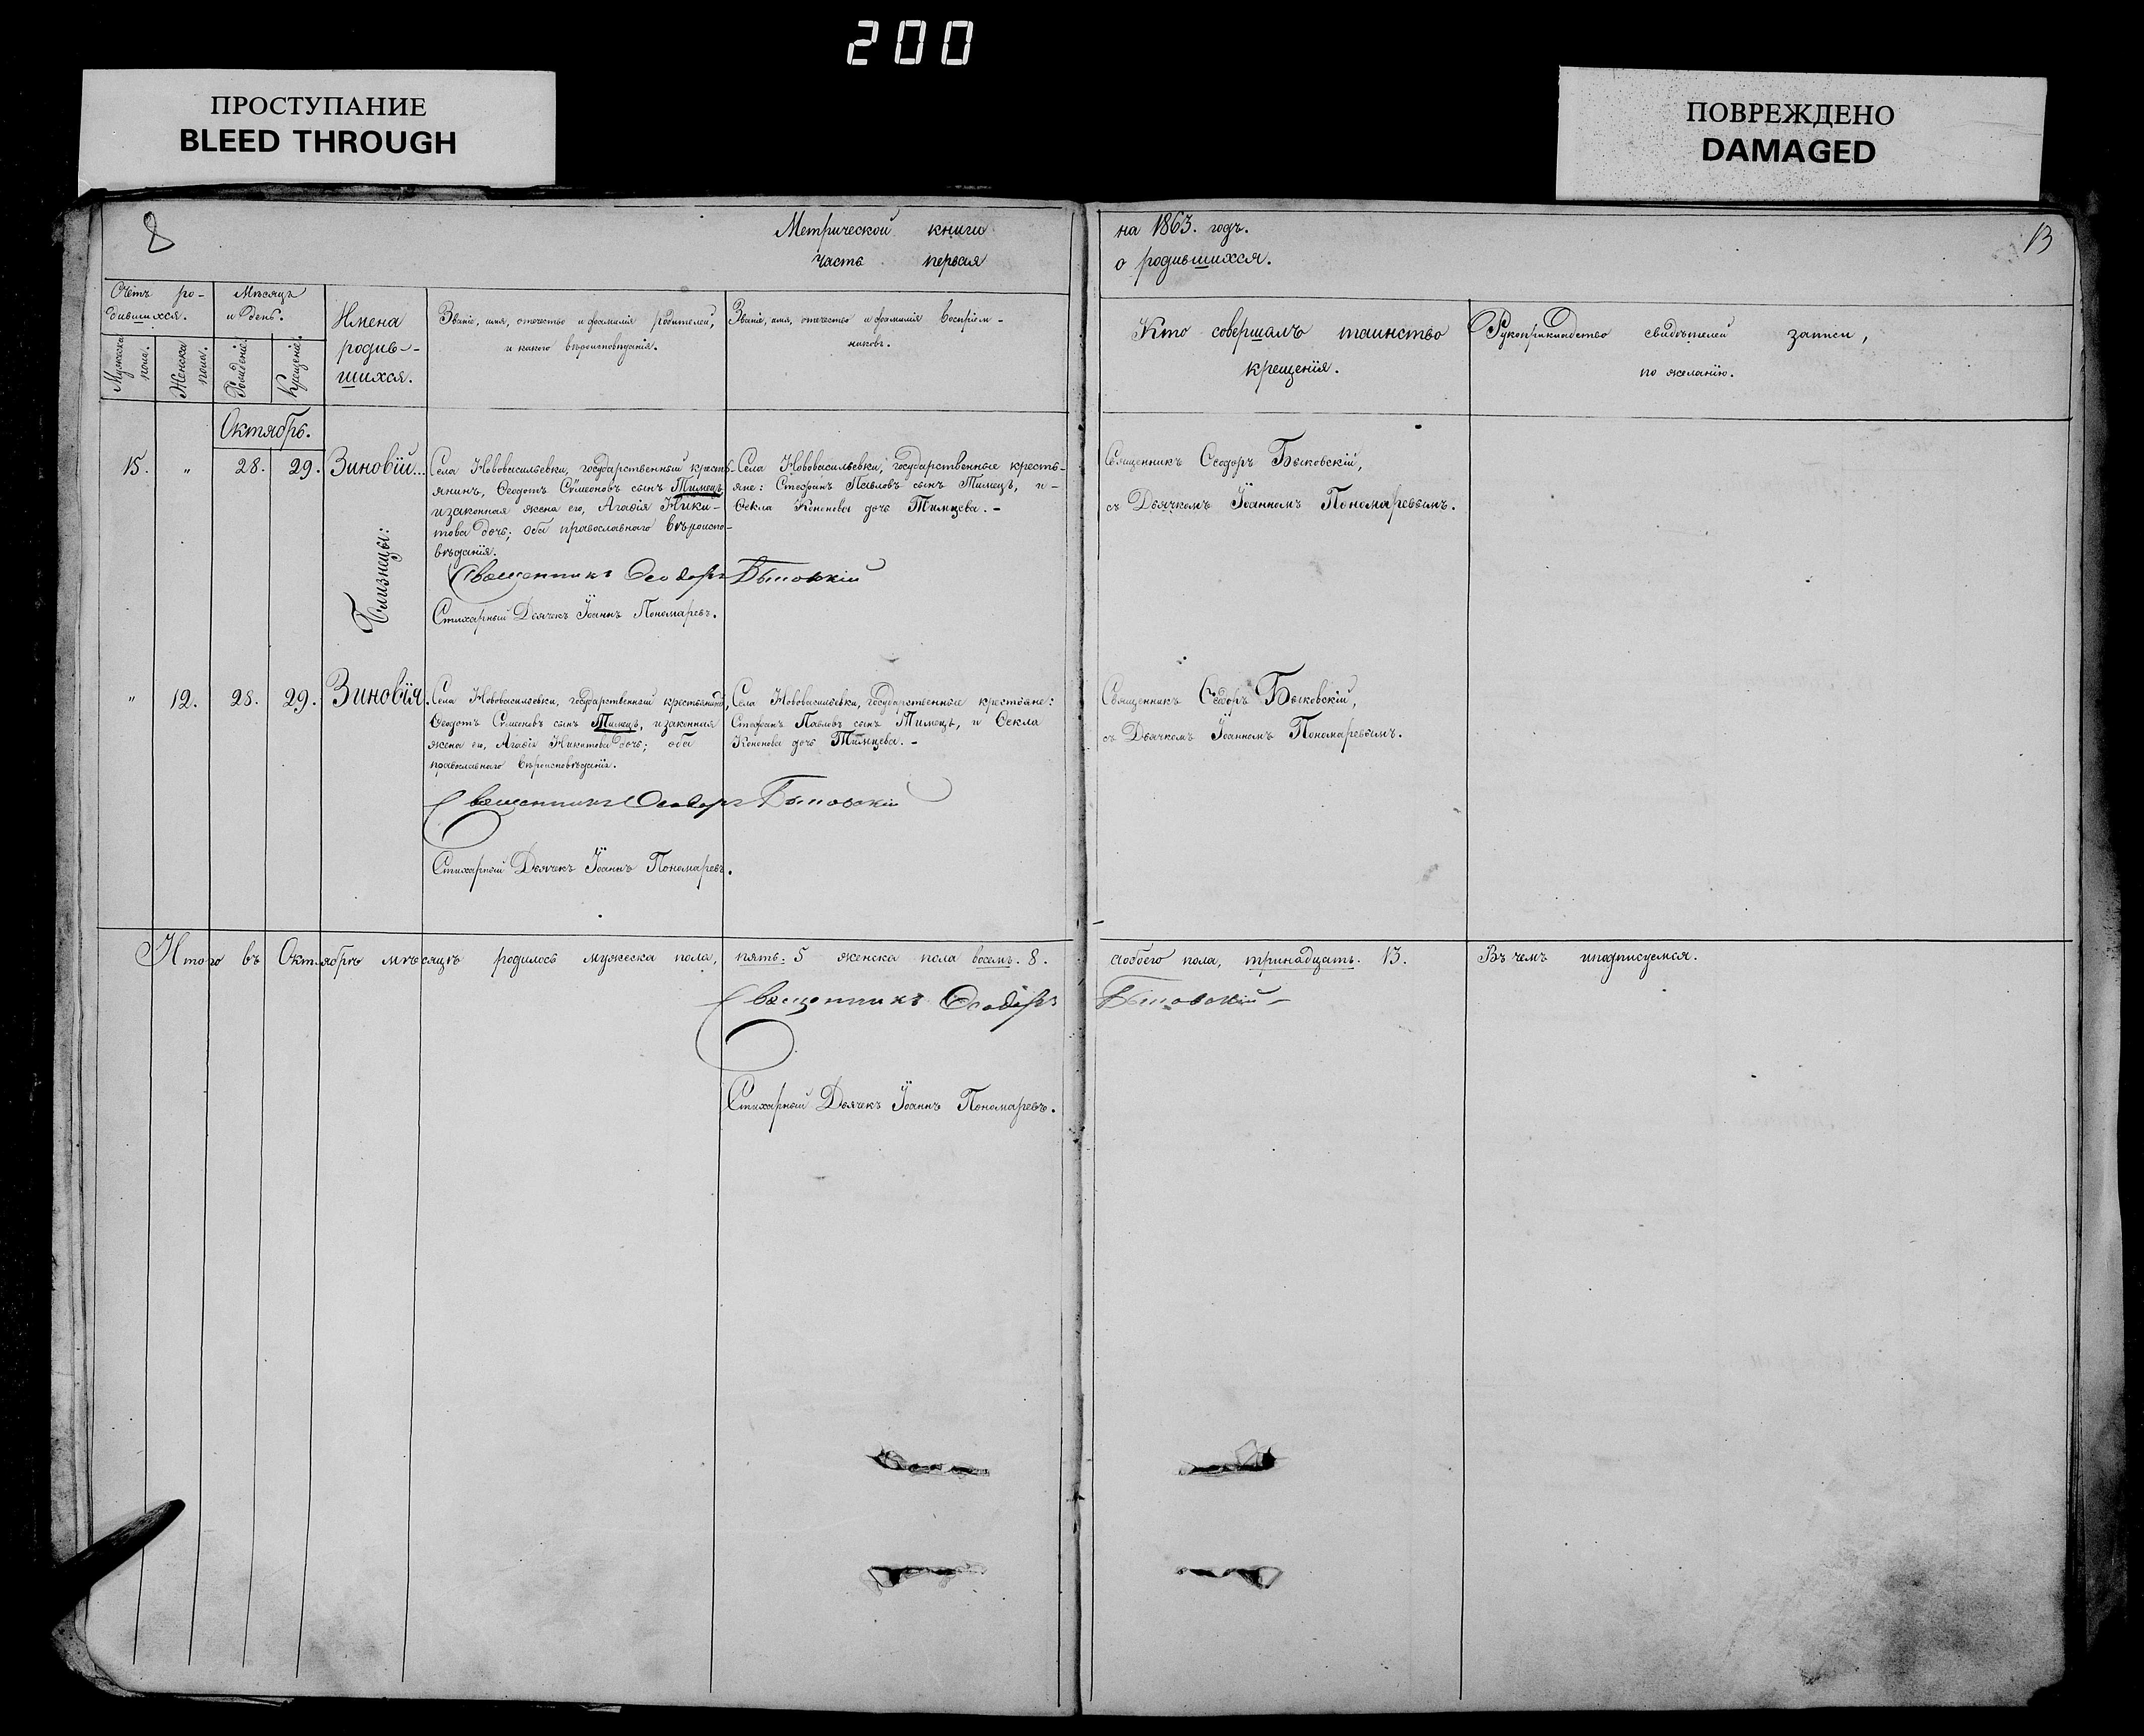 200
ПРОСТУПАНИЕ
BLEED THROUGH
ПОВРЕЖДЕНО
DAMAGED
8
Метрической книги
часть первая
на 1863. годъ.
о родившихся.
13
Счетъ ро-
дившихся.
Мужеска
пола.
Женска
пола.
Мѣсяцъ
и день.
Рожденіе.
Крещеніе.
Имена
родив-
шихся.
Званіе, имя, отечество и фамилія родителей,
и какого вѣроисповѣданія.
Званіе, имя, отечество и фамилія воспріем-
никовъ.
Кто совершалъ таинство
крещенія.
Рукоприкладство свидѣтелей записи,
по желанію.
Октябрь.
15. „ 28. 29. Зиновій...
Села Нововасильевки, государственный кресть-
янинъ, Ѳеодотъ Сѵмеоновъ сынъ Тимецъ
и законная жена его, Агаѳія Ники-
това дочь; оба православнаго вѣроиспо-
вѣданія.
Священникъ Ѳеодоръ Быковскій
Стихарный Дьячекъ Іоаннъ Пономаревъ.
Села Нововасильевки, государственные кресть-
яне: Стефанъ Павловъ сынъ Тимецъ, и-
Ѳекла Кононова дочь Тимцева. -
Священникъ Ѳеодоръ Быковскій,
съ Дьячкомъ Іоанномъ Пономаревымъ.
Близнецы:
„ 12. 28. 29. Зиновія.
Села Нововасильевки, государственный крестьянинъ,
Ѳеодотъ Сѵмеоновъ сынъ Тимецъ, и законная
жена его, Агаѳія Никитова дочь; оба
православнаго вѣроисповѣданія.
Священникъ Ѳеодоръ Быковскій
Стихарный Дьячекъ Іоаннъ Пономаревъ.
Села Нововасильевки, государственные крестьяне:
Стефанъ Павловъ сынъ Тимецъ, и Ѳекла
Кононова дочь Тимцева. -
Священникъ Ѳеодоръ Быковскій,
съ Дьячкомъ Іоанномъ Пономаревымъ.
Итого въ Октябрѣ мѣсяцѣ родилось мужеска пола, пять: 5 женска пола восемь. 8. обоего пола, тринадцать. 13. Въ чемъ и подписуемся.
Священникъ Ѳеодоръ Быковскій -
Стихарный Дьячекъ Іоаннъ Пономаревъ.